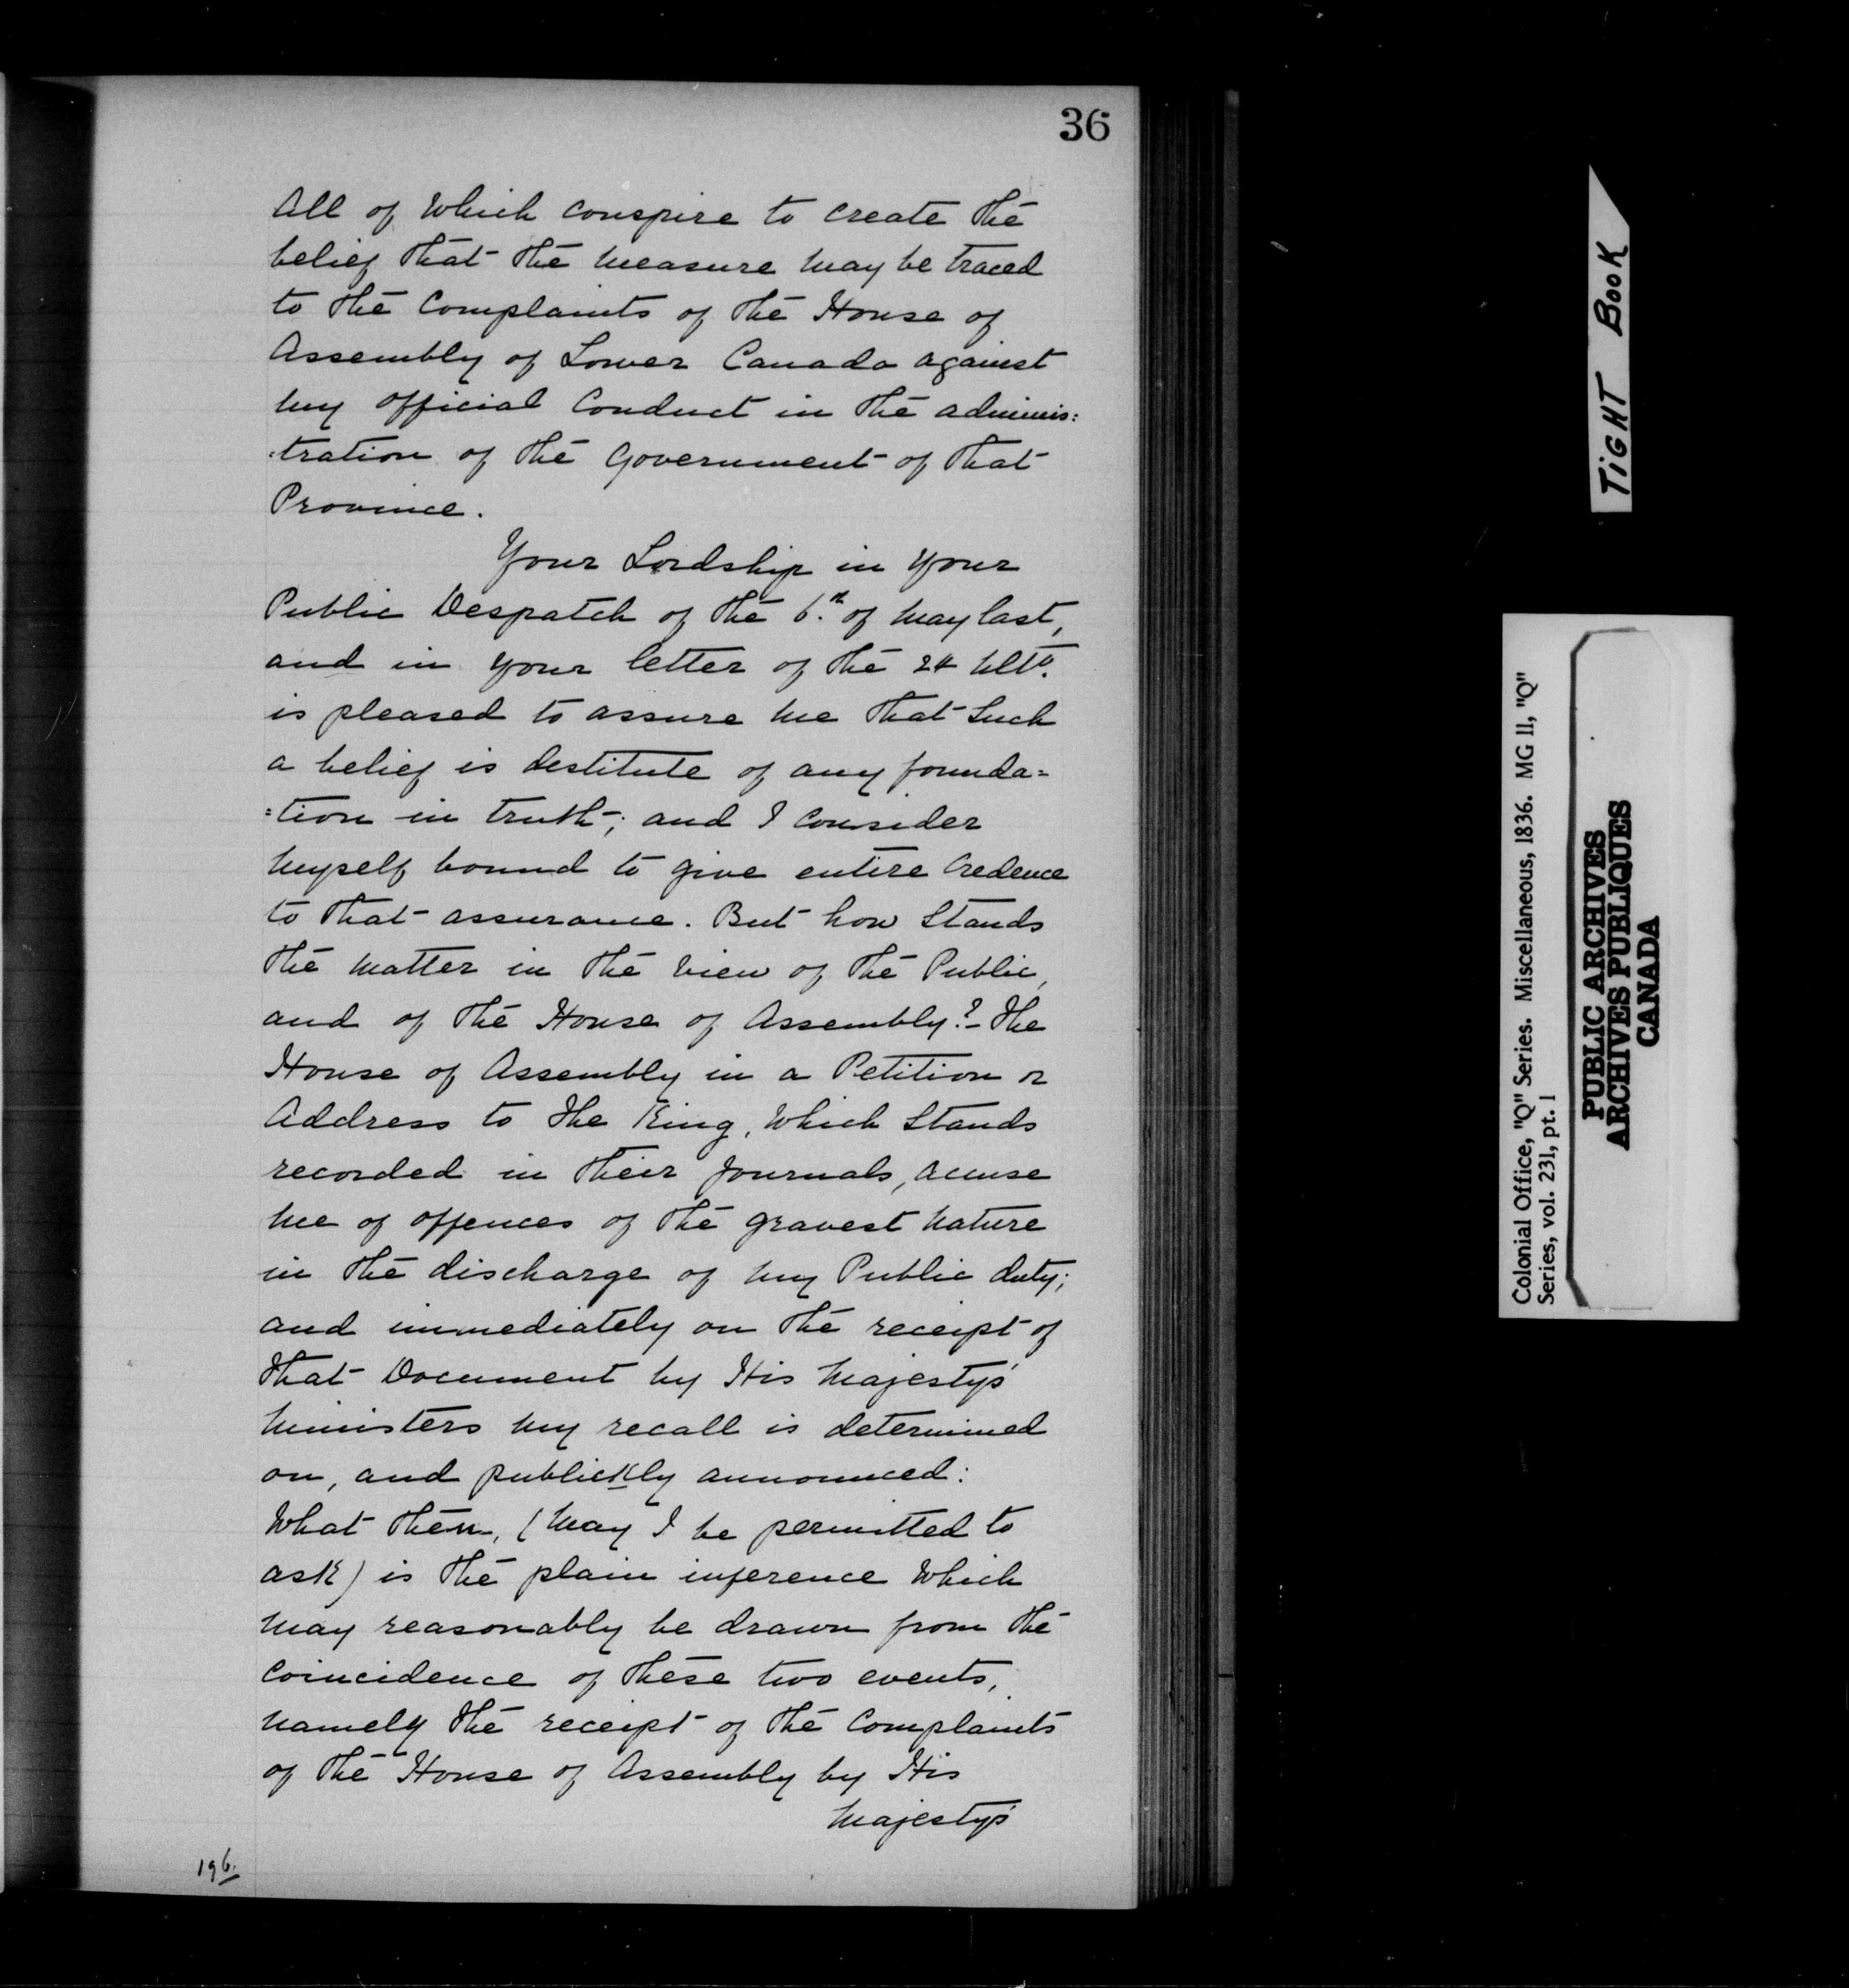 36
All of Which conspire to create the
belief that the measure may be traced
to the Complaints of the House of
Assembly of Lower Canada against
my official Conduct in the adminis:
:tration of the Government of that
Province.
Your Lordship in your
Public Despatch of the 6.th of May last,
and in your letter of the 24 Ulto.
is pleased to assure me that Such
a belief is destitute of any founda=
:tion in truth; and I Consider
myself bound to give entire Credence
to that assurance. But how Stands
the matter in the View of the Public,
and of the House of Assembly?- The
House of Assembly in a Petition or
Address to the King, Which Stands
recorded in their Journals, accuse
me of offences of the gravest nature
in the discharge of my Public duty;
and immediately on the receipt of
that Document by His Majesty's
Ministers my recall is determined
on, and publickly announced:
What then, (may I be permitted to
ask) is the plain inference Which
may reasonably be drawn from the
Coincidence of these two events,
namely the receipt of the Complaints
of the House of Assembly by His
Majesty's
196.
TIGHT BOOK
Colonial Office, "Q" Series. Miscellaneous, 1836. MG 11, "Q"
Series, vol. 231, pt. 1
PUBLIC ARCHIVES
ARCHIVES PUBLIQUES
CANADA